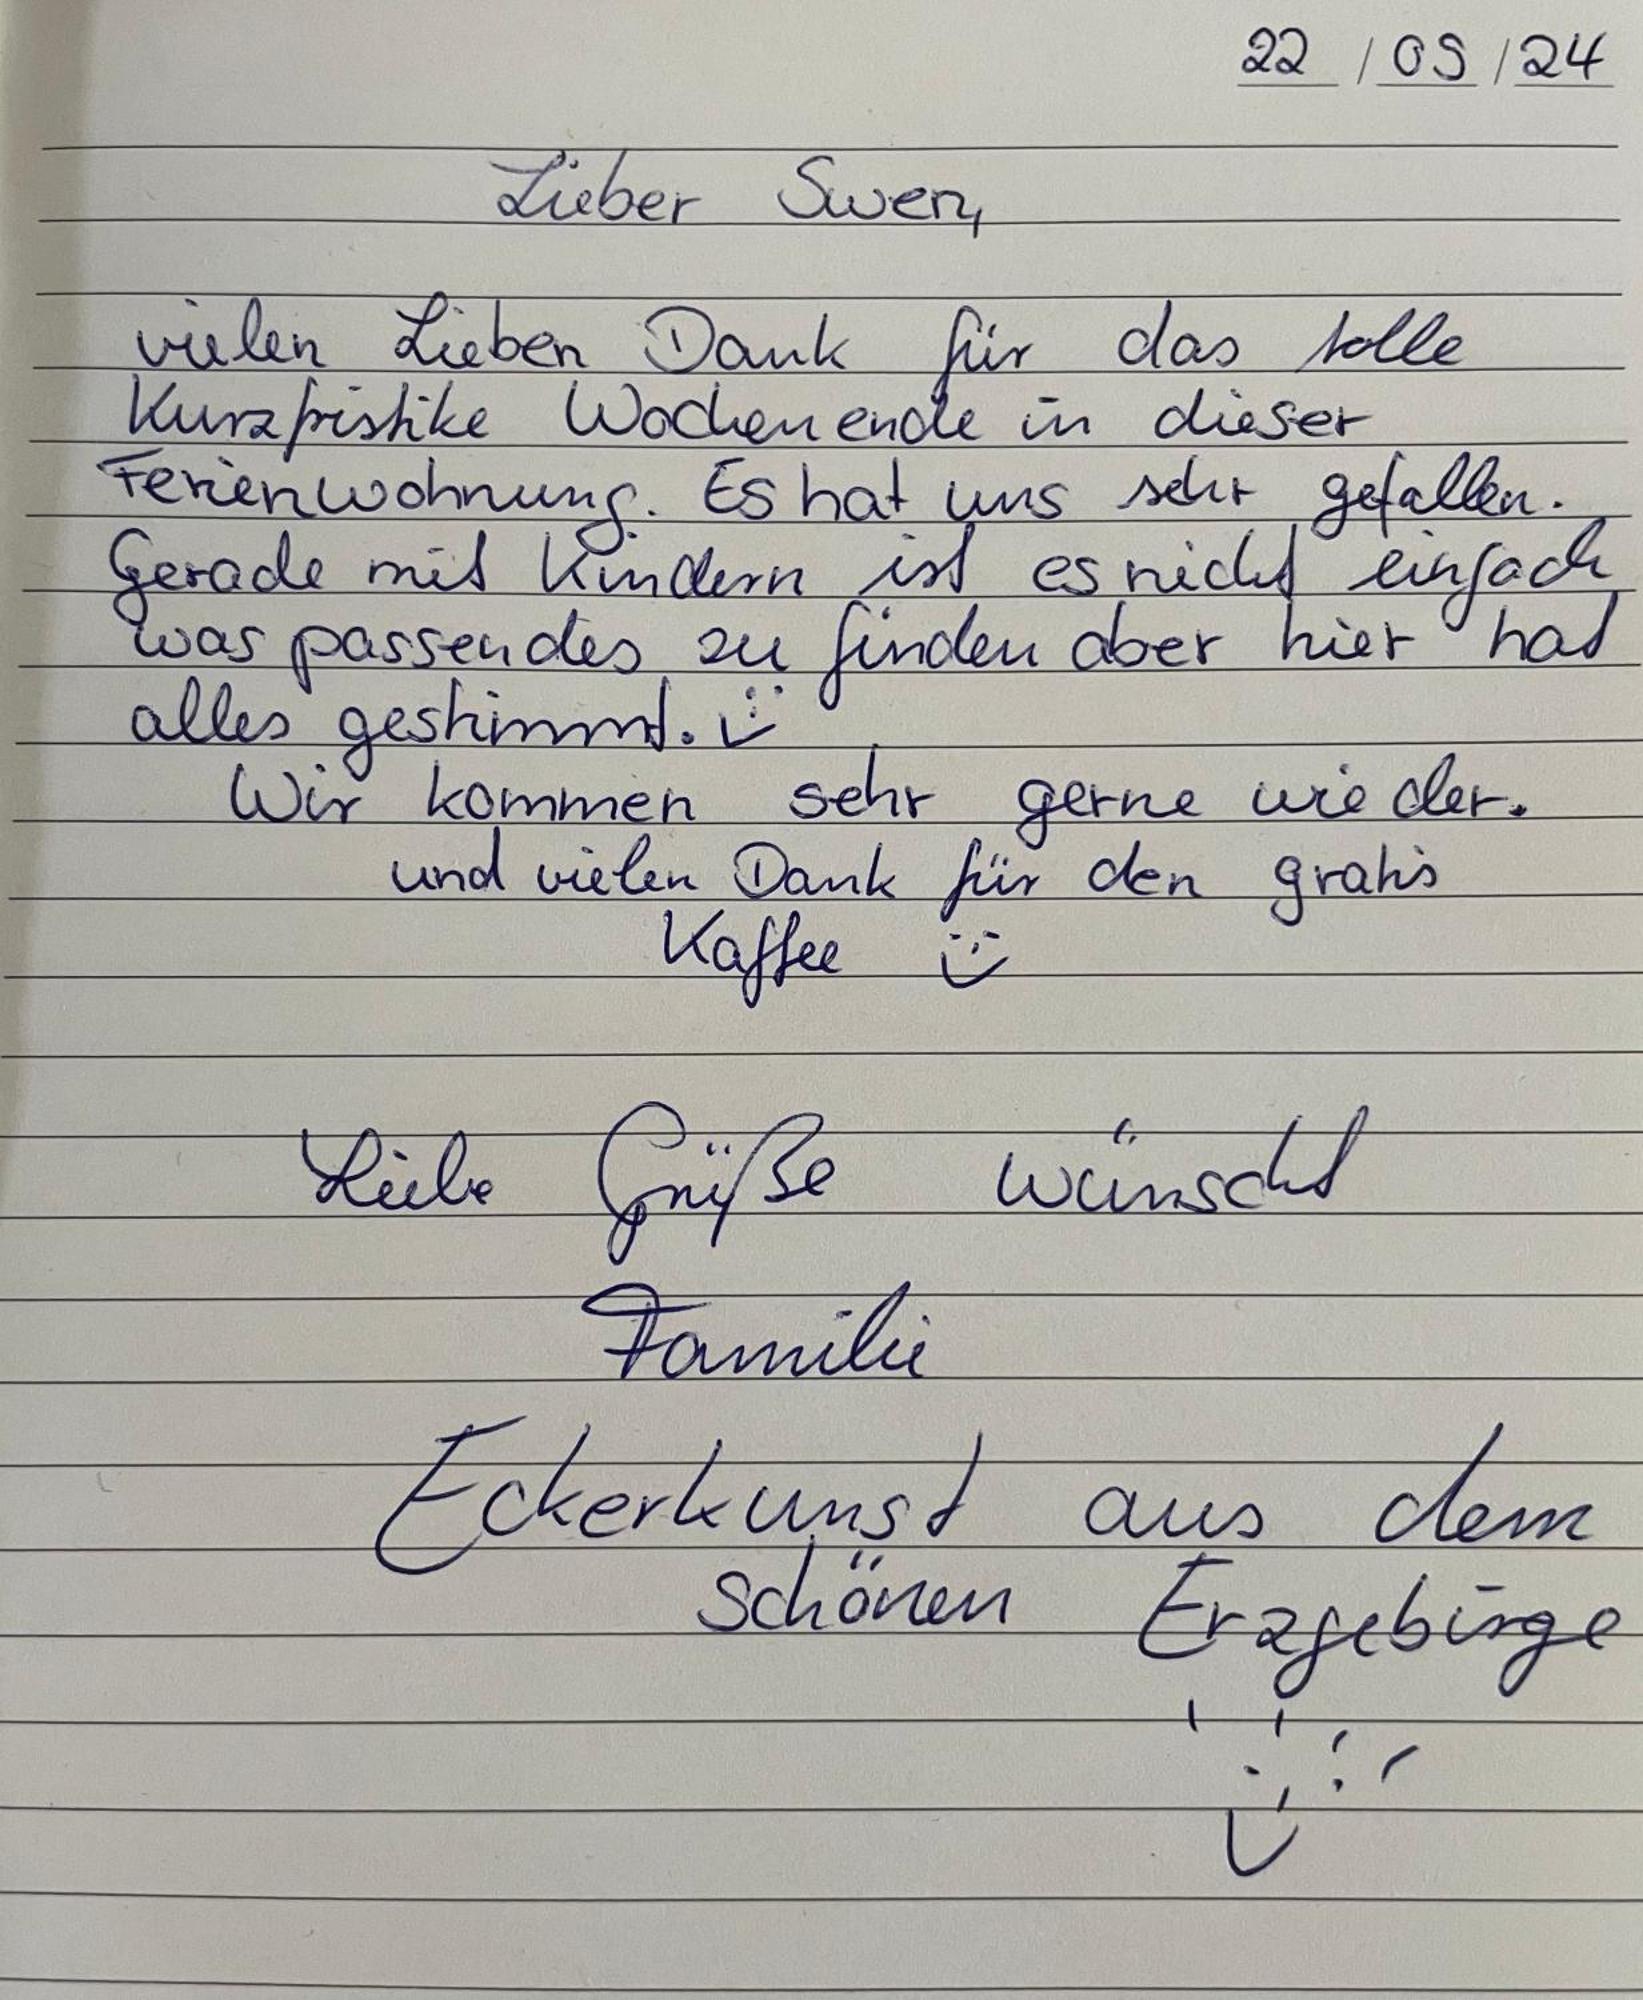 22 / 09 / 24
Lieber Swen,
vielen Lieben Dank für das tolle
Kurzfristike Wochenende in dieser
Ferienwohnung. Es hat uns sehr gefallen.
Gerade mit Kindern ist es nicht einfach
was passendes zu finden aber hier hat
alles gestimmt.
Wir kommen sehr gerne wieder.
und vielen Dank für den gratis
Kaffee
Liebe Grüße wünscht
Familie
Eckerkunst aus dem
schönen Erzgebirge